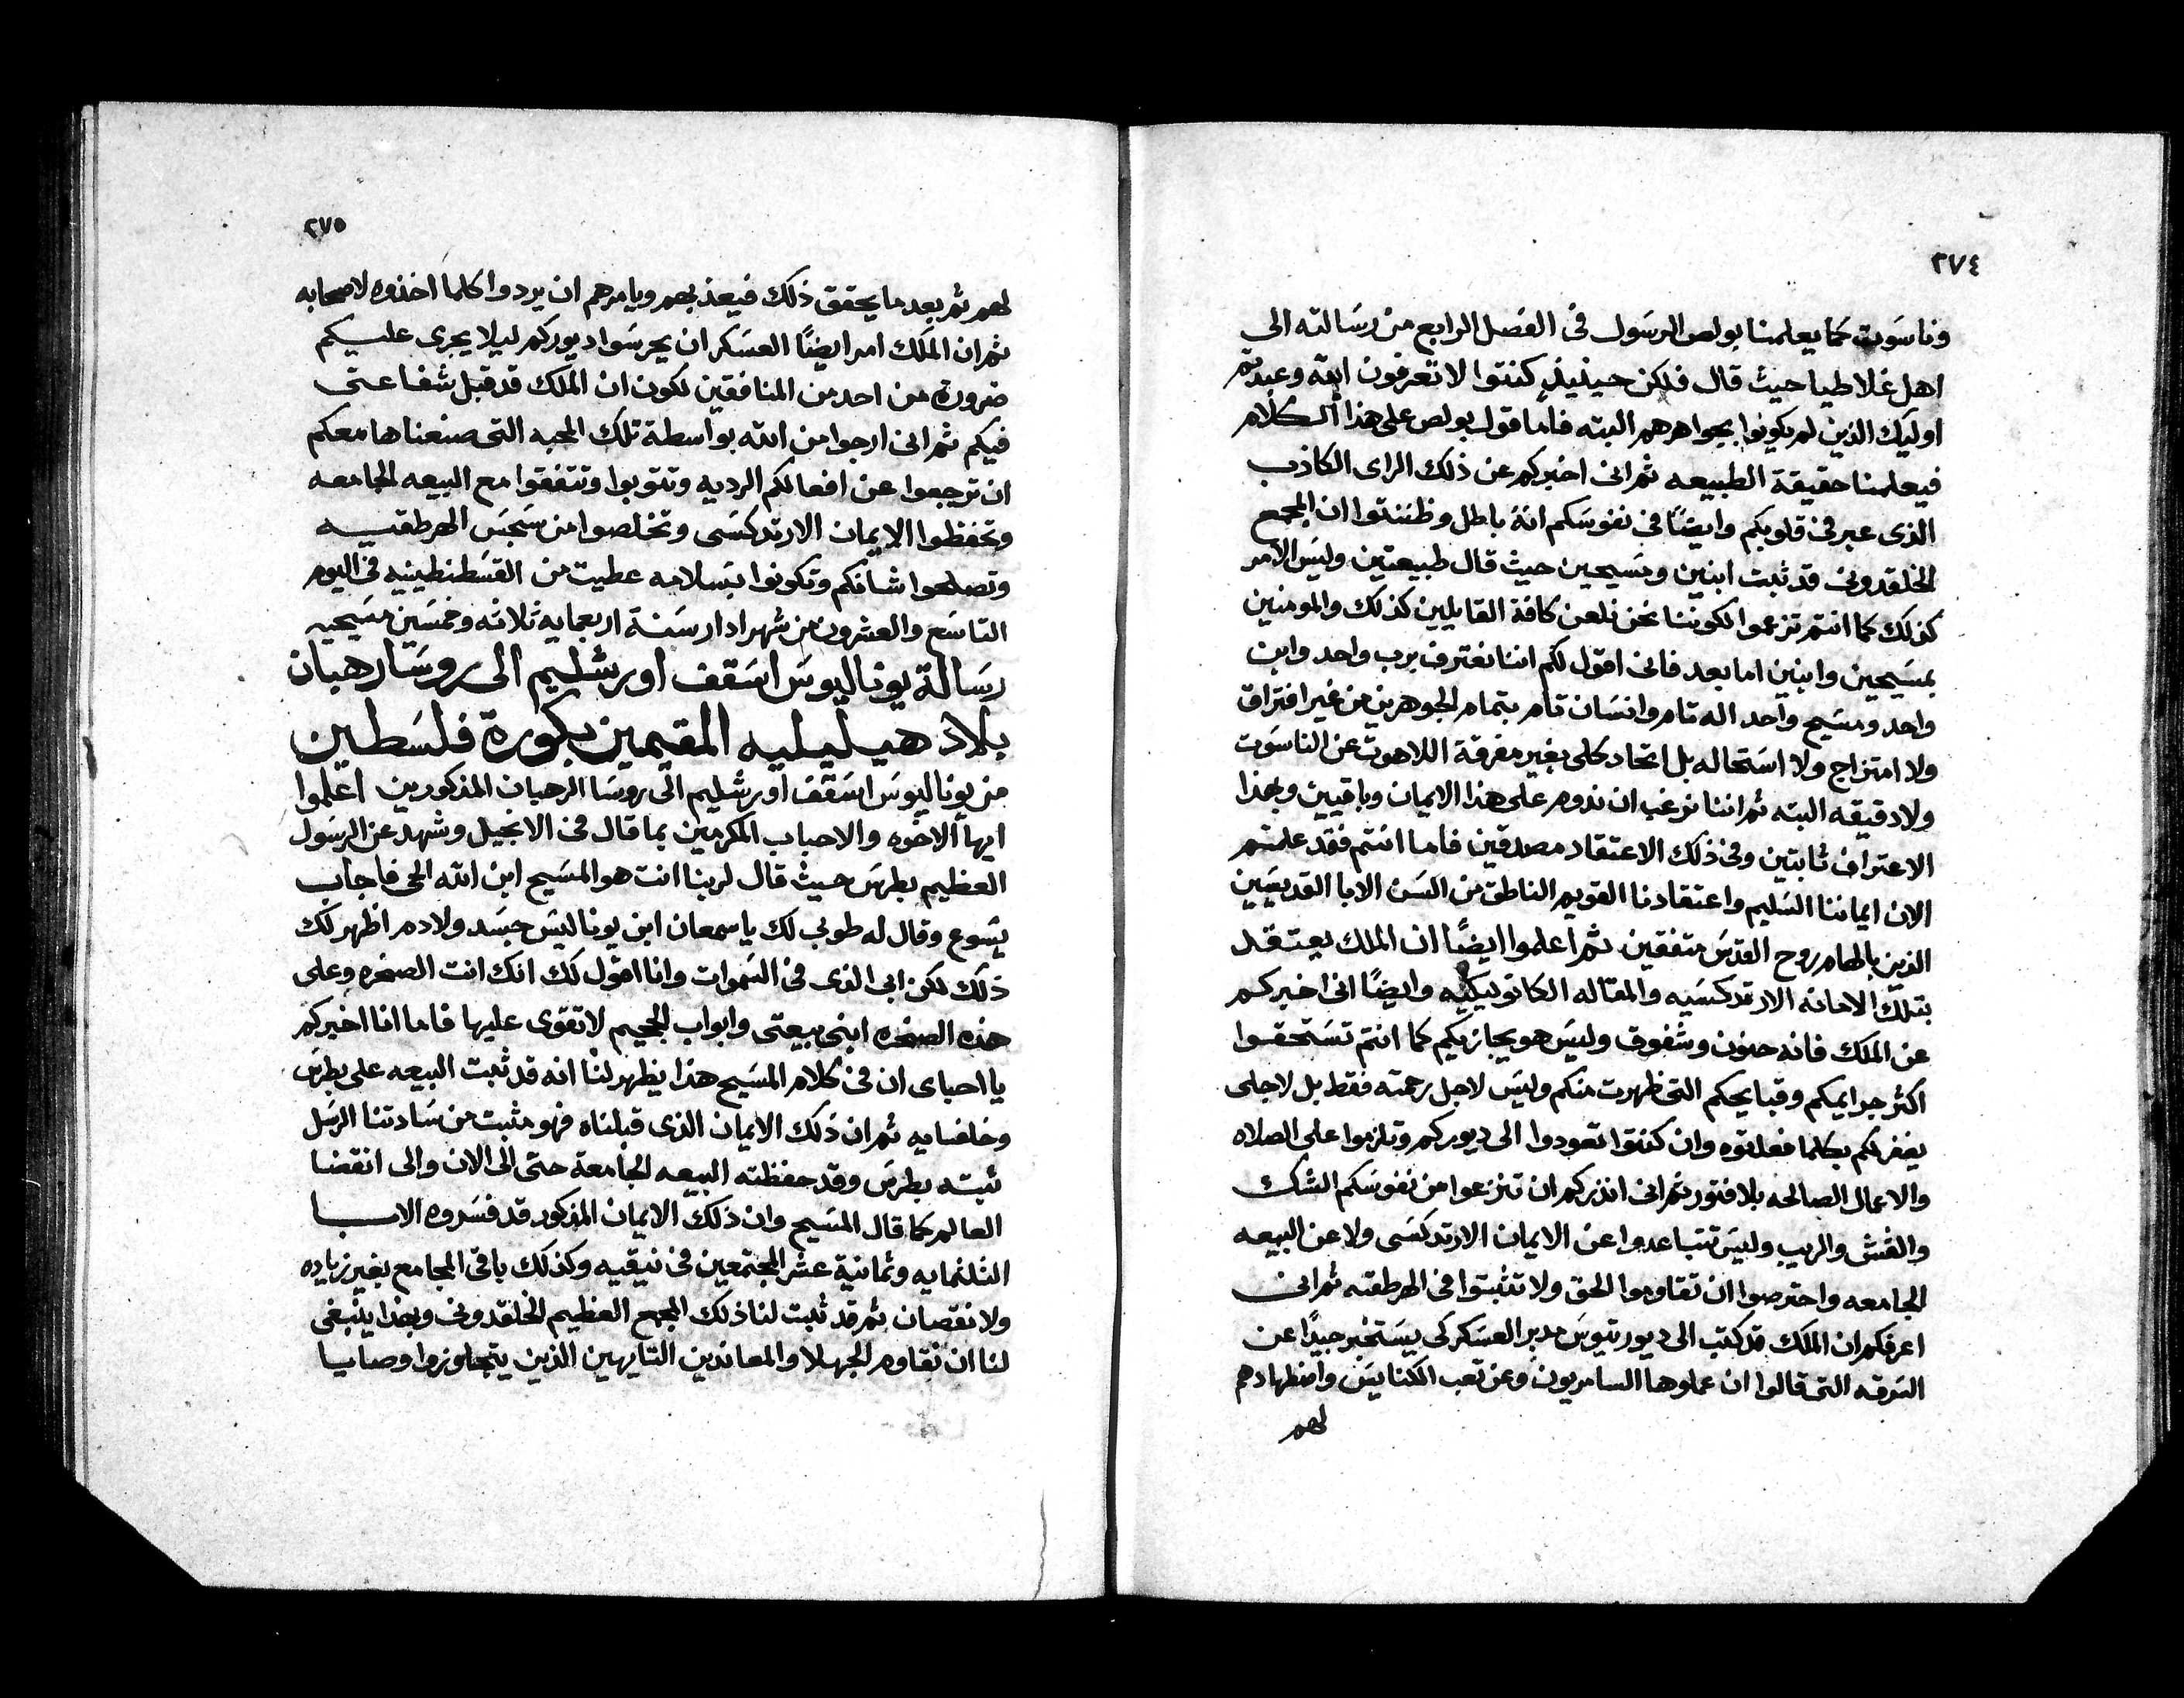 ٢٧٤
وناسوت كما يعلمنا بولص الرسول فى الفصل الرابع من رسالته الى
اهل غلاطيا حيث قال فلكن حينيذٍ كنتوا لا تعرفون الله وعبدتم
اوليك الذين لم يكونوا بجواهرهم البته فاما قول بولص على هذا الكلام
فيعلمنا حقيقة الطبيعه ثم انى اخبركم عن ذلك الراى الكاذب
الذى عبر فى قلوبكم وايضًا فى نفوسكم انه باطل وظننتوا ان المجمع
الخلقدونى قد ثبت ابنين ومسيحين حيث قال طبيعتين وليس الامر
كذلك كما انتم تزعموا لكوننا نحن نلعن كافة القايلين كذلك والمومنين
بمسيحين وابنين اما بعد فانى اقول لكم اننا نعترف برب واحد وابن
واحد ومسيح واحد اله تام وانسان تام بتمام الجوهرين من غير افتراق
ولا امتزاج ولا استحاله بل اتحاد كلى بغير مفرقة اللاهوت عن الناسوت
ولا دقيقه البته ثم اننا نرغب ان ندوم على هذا الايمان وباقيين وبهذا
الاعتراف ثابتين وفى ذلك الاعتقاد مصدقين فاما انتم فقد علمتم
الان ايماننا السليم واعتقادنا القويم الناطق من السن الابا القديسين
الذين بالهام روح القدس متفقين ثم اعلموا ايضًا ان الملك يعتقد
بتلك الامانه الارتدكسيه والمقاله الكاتوليكيه وايضًا انى اخبركم
عن الملك فانه حنون وشفوق وليس هو يجازيكم كما انتم تستحقوا
اكثر جرايمكم وقبايحكم التى ظهرت منكم وليس لاجل رحمته فقط بل لاجلى
يغفر لكم بكلما فعلتوه وان كنتوا تعودوا الى ديوركم وتلزموا على الصلاه
والاعمال الصالحه بلا فتور ثم انى انذركم ان تنزعوا من نفوسكم الشك
والغش والريب وليس تتباعدوا عن الايمان الارتدكسى ولا عن البيعه
الجامعه واحترصوا ان تقاوموا الحق ولا تثبتوا فى الهرطقه ثم انى
اعرفكم ان الملك قد كتب الى ديوريتوس مدبر العسكر كى يستخبر جيدًا عن
السرقه التى قالوا ان عملوها السامريون وعن تعب الكنايس واضطهادهم
لهم
٢٧٥
لهم ثم بعد ما يحقق ذلك فيعذبهم ويامرهم ان يردوا كلما اخذوه لاصحابه
ثم ان الملك امر ايضًا العسكر ان يحرسوا ديوركم ليلا يجرى عليكم
ضروره من احد من المنافقين لكون ان الملك قد قبل شفاعتى
فيكم ثم انى ارجوا من الله بواسطة تلك المحبه التى صنعناها معكم
ان ترجعوا عن افعالكم الرديه وتتوبوا وتتفقوا مع البيعه الجامعه
وتحفظوا الايمان الارتدكسى وتخلصوا من سجس الهرطقيه
وتصلحوا شانكم وتكونوا بسلامه عطيت من القسطنطينيه فى اليوم
التاسع والعشرون من شهر ادار سنة اربعمايه ثلاثه وخمسين مسيحيه
رسالة يوناليوس اسقف اورشليم الى روسا رهبان
بلاد هيليليه المقيمين بكورة فلسطين
من يوناليوس اسقف اورشليم الى روسا الرهبان المذكورين اعلموا
ايها الاخوه والاحباب المكرمين بما قال فى الانجيل وشهد عن الرسول
العظيم بطرس حيث قال لربنا انت هو المسيح ابن الله الحى فاجاب
يسوع وقال له طوبى لك يا سمعان ابن يونا ليس جسد ولا دم اظهر لك
ذلك لكن ابى الذى فى السموات وانا اقول لك انك انت الصخره وعلى
هذه الصخره ابنى بيعتى وابواب الجحيم لا تقوى عليها فاما انا اخبركم
يا احباى ان فى كلام المسيح هذا يظهر لنا انه قد ثبت البيعه على بطرس
وخلفايه ثم ان ذلك الايمان الذى قبلناه فهو مثبت من سادتنا الرسل
ثبته بطرس وقد حفظته البيعه الجامعة حتى الى الان والى انقضا
العالم كما قال المسيح وان ذلك الايمان المذكور قد فسروه الابا
الثلثمايه وثمانية عشر المجتمعين فى نيقيه وكذلك باقى المجامع بغير زياده
ولا نقصان ثم قد ثبت لنا ذلك المجمع العظيم الخلقدونى وبهذا ينبغى
لنا ان نقاوم الجهلا والمعاندين التايهين الذين يتجاوزوا وصايا